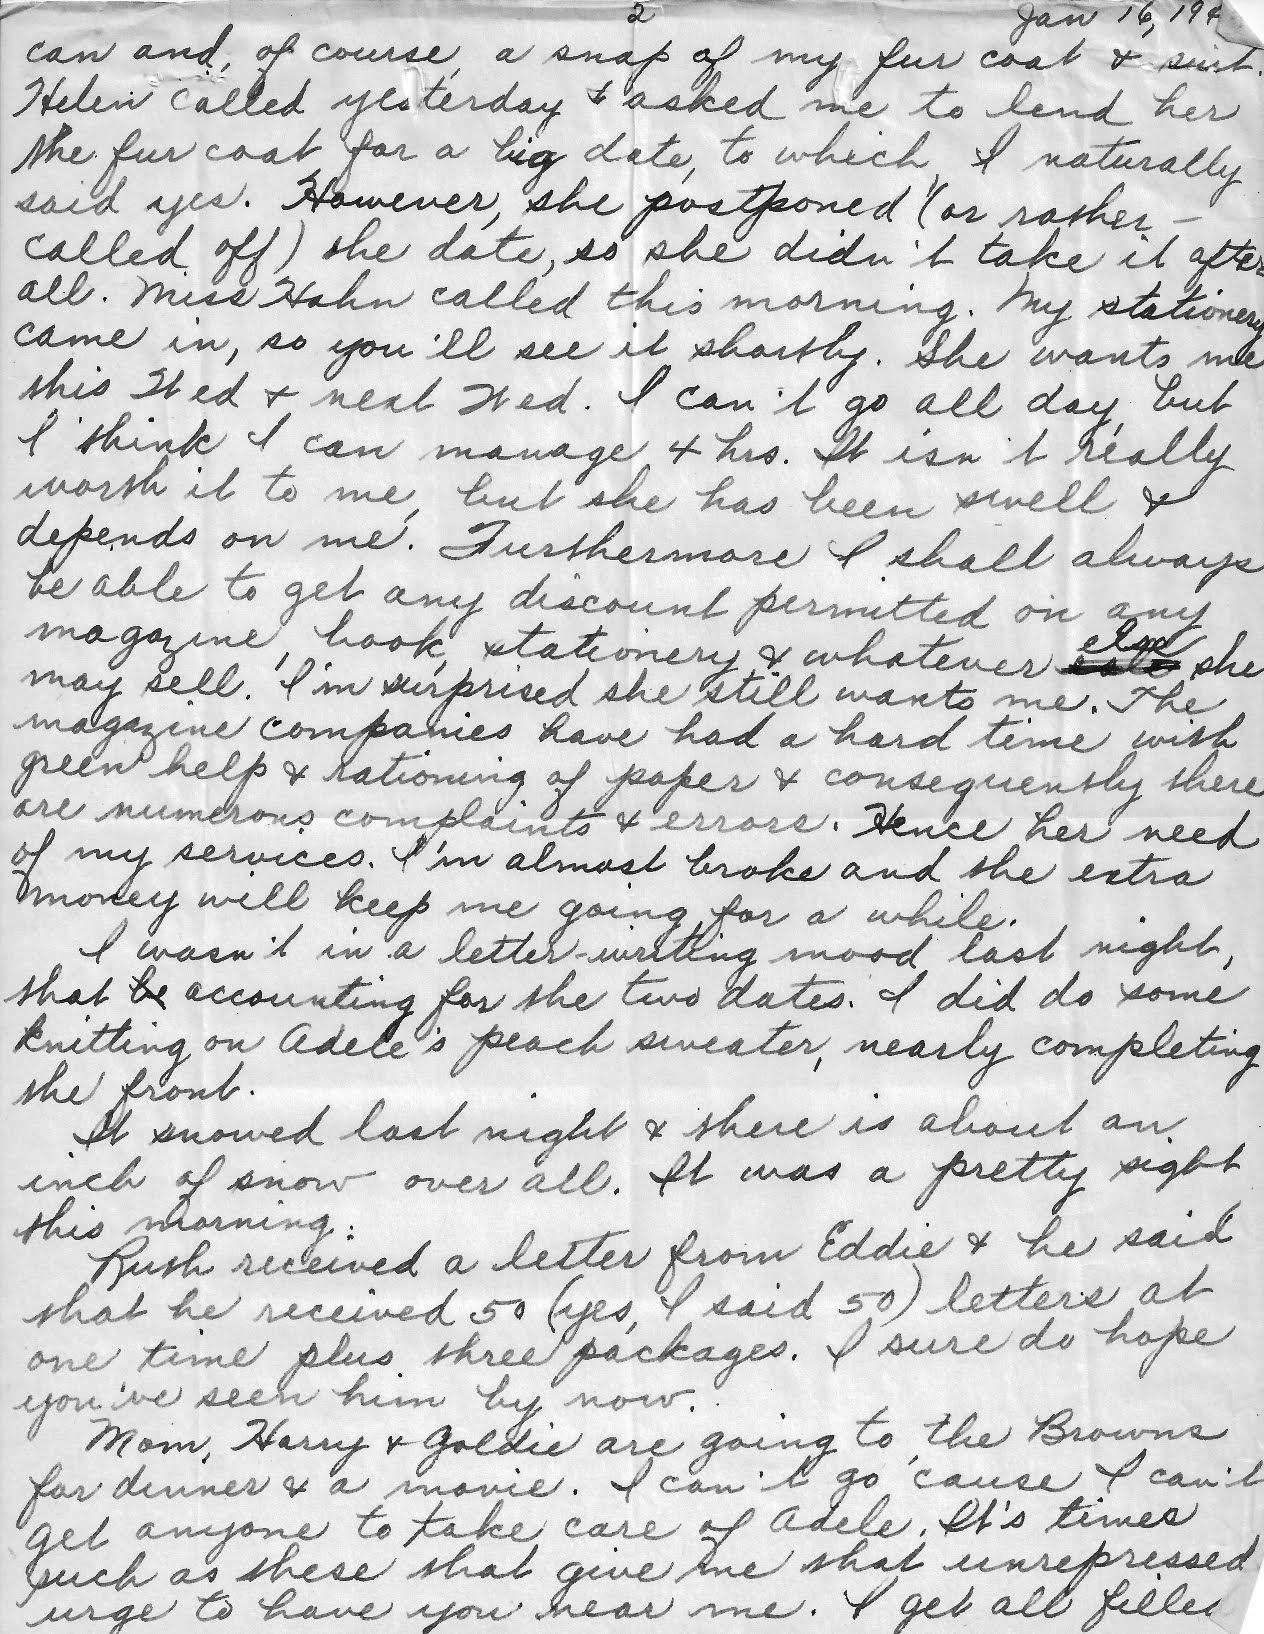 2
Jan 16, 194
can and, of course, a snap of my fur coat & suit.
Helen called yesterday & asked me to lend her
the fur coat for a big date, to which, I naturally
said yes. However, she postponed (or rather -
called off) the date, so she didn't take it after
all. Miss Hahn called this morning. My stationery
came in, so you'll see it shortly. She wants me
this Wed & next Wed. I can't go all day, but
I think I can manage 4 hrs. It isn't really
worth it to me, but she has been swell &
depends on me. Furthermore I shall always
be able to get any discount permitted on any
magazine, book, stationery & whatever else she
may sell. I'm surprised she still wants me. The
magazine companies have had a hard time with
green help & rationing of paper & consequently there
are numerous complaints & errors. Hence her need
of my services. I'm almost broke and the extra
money will keep me going for a while.
I wasn't in a letter-writing mood last night,
that be accounting for the two dates. I did do some
knitting on Adele's peach sweater, nearly completing
the front.
It snowed last night & there is about an
inch of snow over all. It was a pretty sight
this morning.
Ruth received a letter from Eddie & he said
that he received 50 (yes, I said 50) letters at
one time plus three packages. I sure do hope
you've seen him by now.
Mom, Harry & Goldie are going to the Browns
for dinner & a movie. I can't go 'cause I can't
get anyone to take care of Adele. It's times
such as these that give me that unrepressed
urge to have you near me. I get all filled